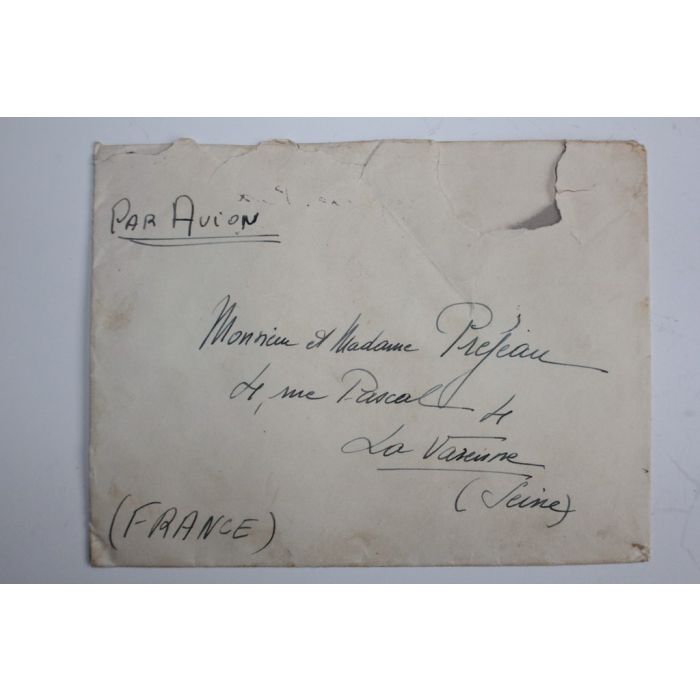 PAR AVION
Monsieur et Madame Préjean
4, rue Pascal 4
La Varenne
(Seine)
(FRANCE)